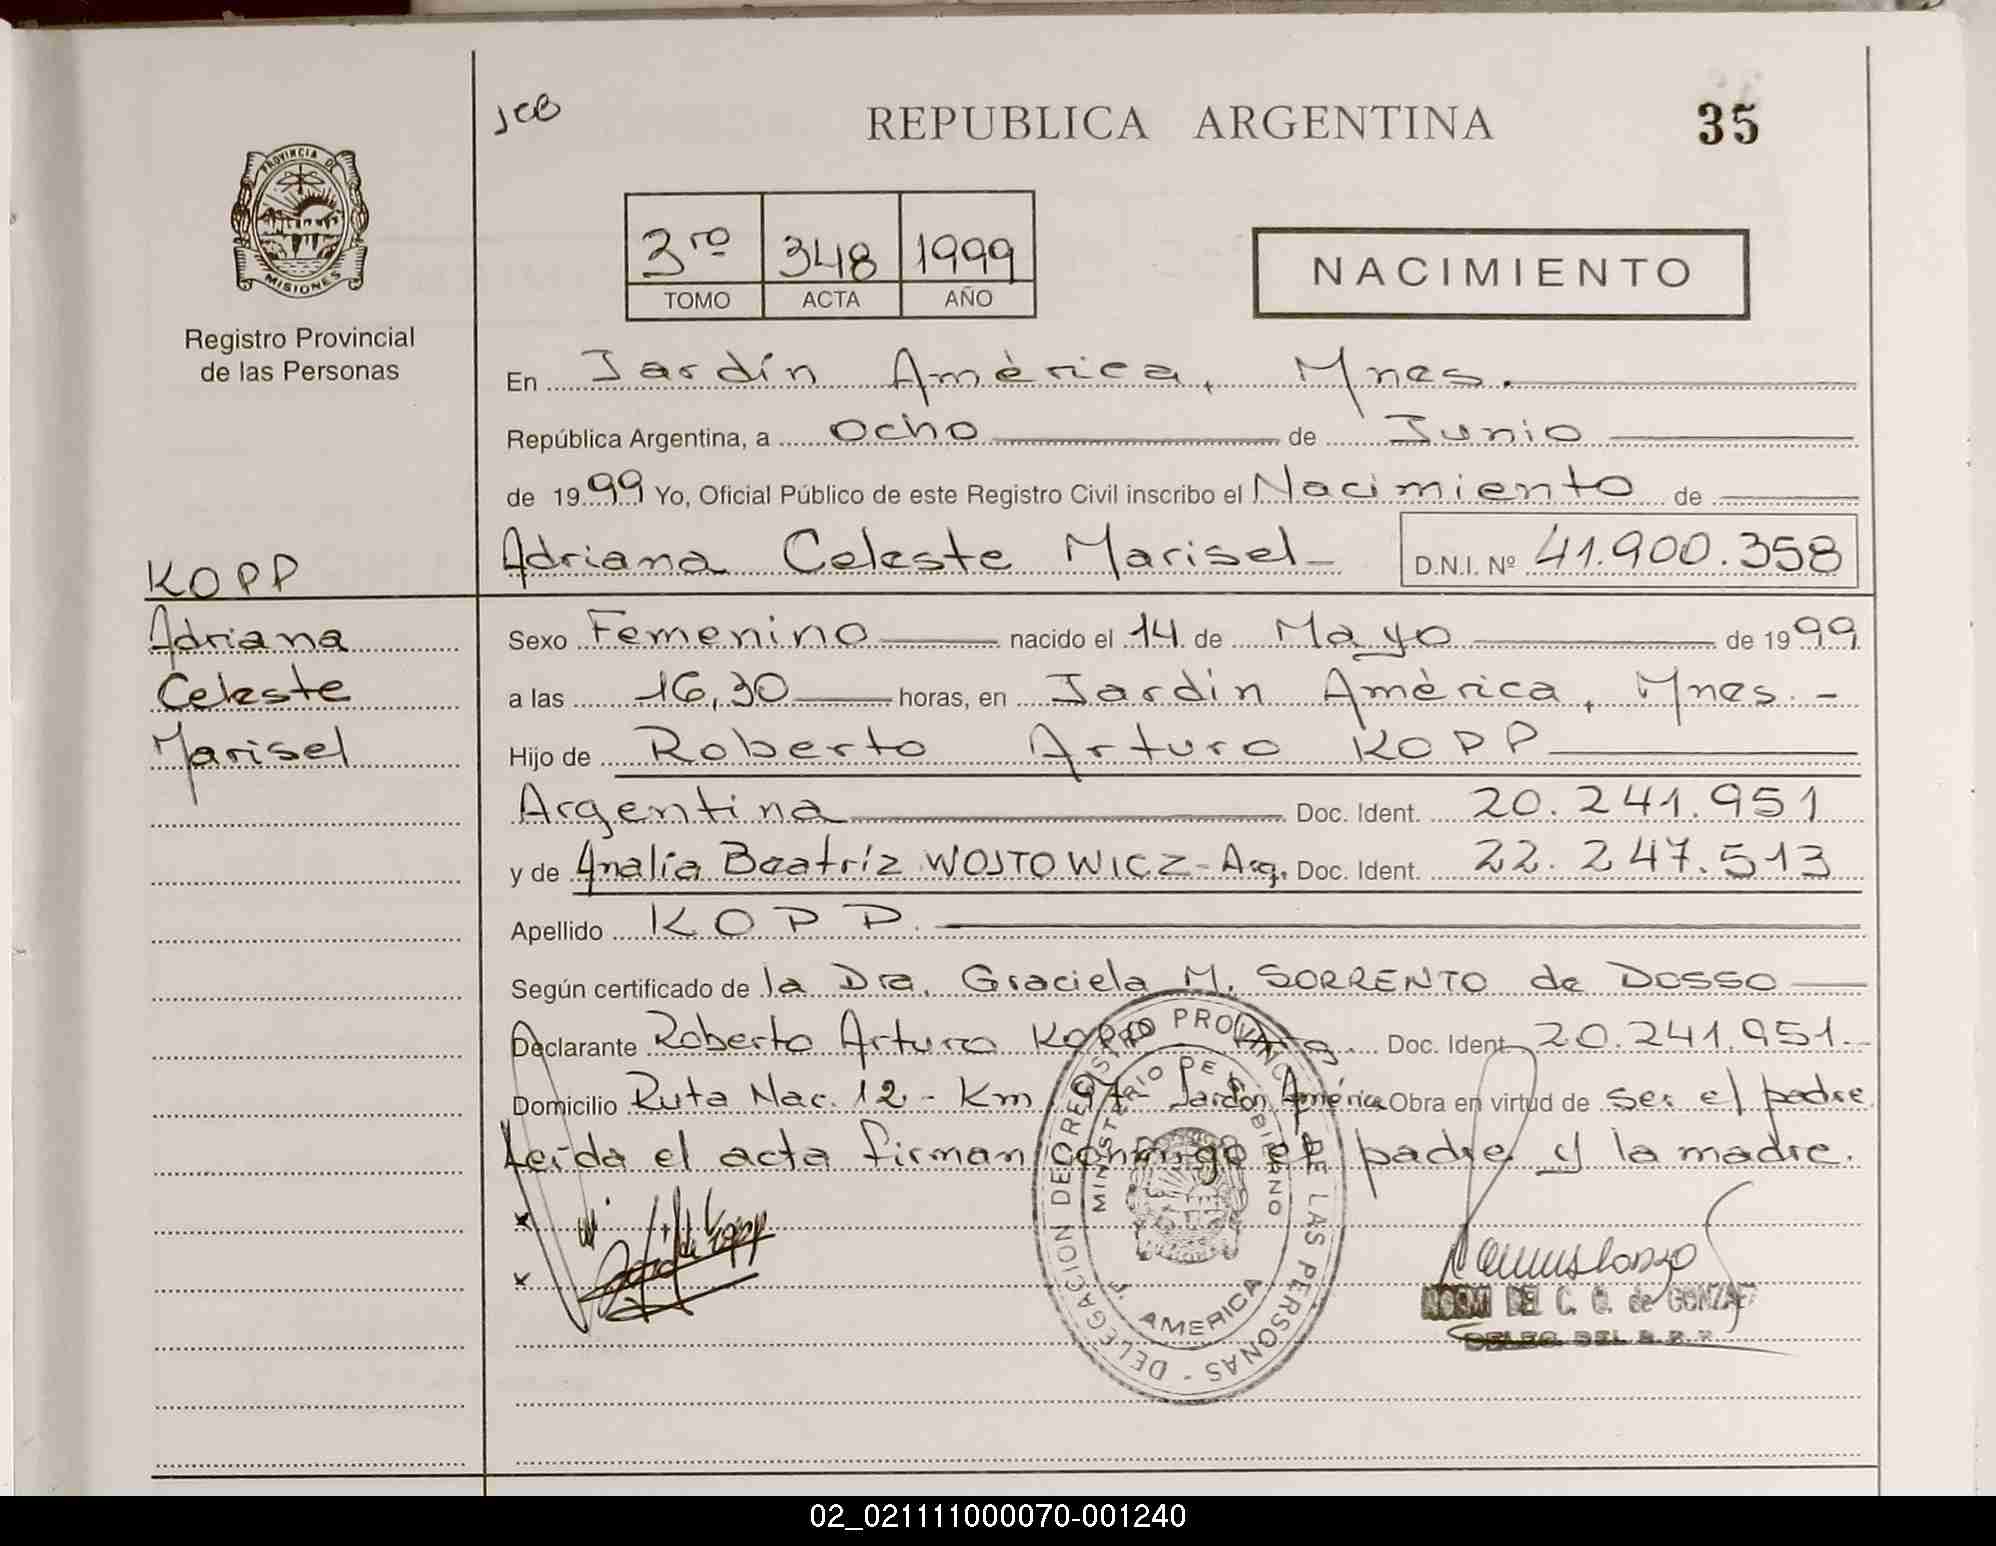 JCB
REPUBLICA ARGENTINA
35
PROVINCIA DE
MISIONES
Registro Provincial
de las Personas
3ro 348 1999
TOMO ACTA AÑO
NACIMIENTO
En Jardín América, Mnes.
República Argentina, a ocho de Junio
de 1999 Yo, Oficial Público de este Registro Civil inscribo el Nacimiento de
Adriana Celeste Marisel D.N.I. Nº 41.900.358
KOPP
Adriana
Celeste
Marisel
Sexo Femenino nacido el 14 de Mayo de 1999
a las 16,30 horas, en Jardín América, Mnes.-
Hijo de Roberto Arturo KOPP
Argentina Doc. Ident. 20.241.951
y de Analía Beatríz WOJTOWICZ-Arg. Doc. Ident. 22.247.513
Apellido KOPP.
Según certificado de la Dra. Graciela M. SORRENTO de DOSSO
Declarante Roberto Arturo KOPP Arg. Doc. Ident. 20.241.951.-
Domicilio Ruta Nac. 12 - Km - Jardín América Obra en virtud de ser el padre
Leída el acta firman conmigo el padre y la madre.
DELEGACION DE REGISTRO PROVINCIAL DE LAS PERSONAS -
MINISTERIO DE GOBIERNO
AMERICA
DEL C. de
DELEG. DEL R.P.
02_021111000070-001240